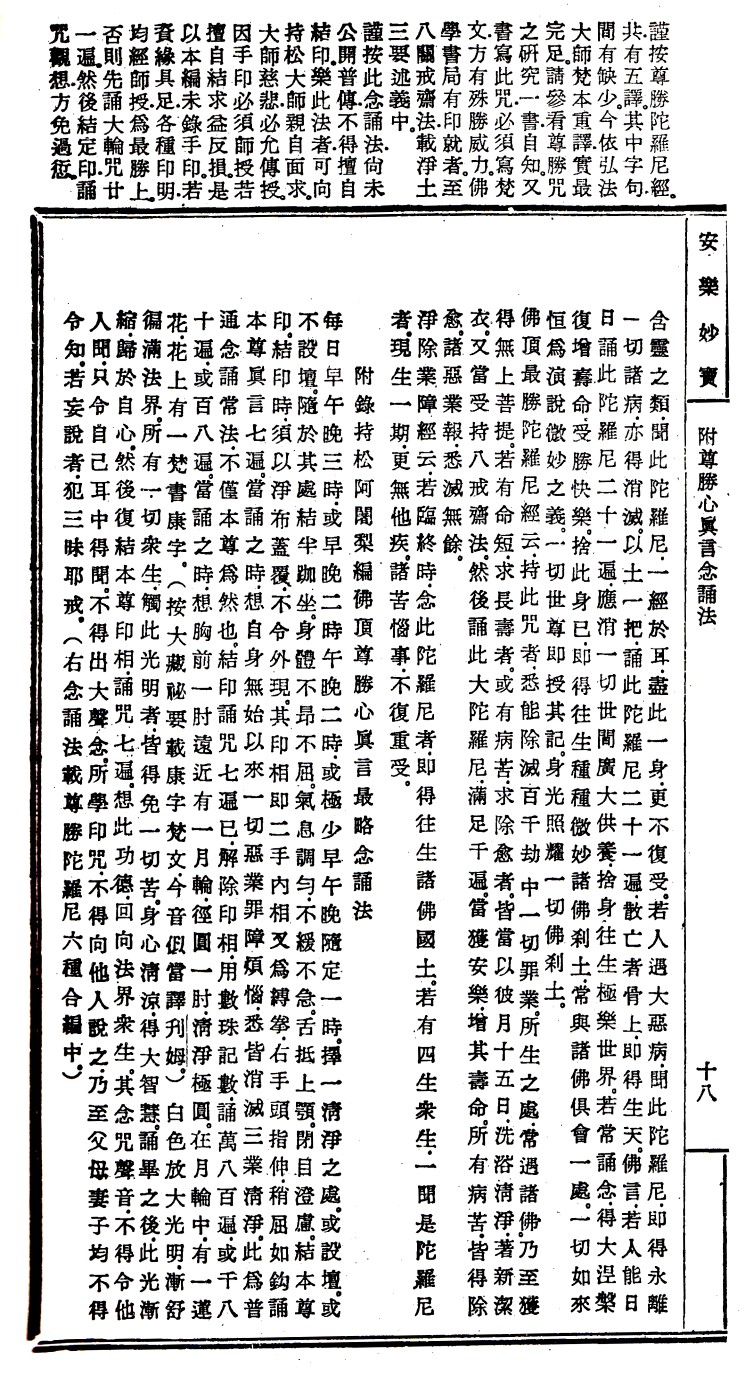 謹按尊勝陀羅尼經.
共有五譯.其中字句
間有缺少.今依弘法
大師梵本重譯.實最
完足.請參看尊勝咒
之硏究一書.自知.又
書寫此咒必須寫梵
文.方有殊勝威力.佛
學書局有印就者.至
八關戒齋法載淨土
三要述義中.
謹按此念誦法尙未
公開普傳.不得擅自
結印.樂此法者.可向
持松大師親自面求.
大師慈悲必允傳授.
因手印必須師授.若
擅自結求益反損.是
以本編未錄手印.若
資緣具足.各種印明.
均經師授.爲最勝上.
否則先誦大輪咒廿
一遍.然後結定印.誦
咒觀想方免過愆.
安樂妙寶
附尊勝心眞言念誦法
十八
含靈之類.聞此陀羅尼.一經於耳.盡此一身.更不復受.若人遇大惡病.聞此陀羅尼.卽得永離
一切諸病.亦得消滅.以土一把.誦此陀羅尼二十一遍.散亡者骨上.卽得生天.佛言.若人能日
日誦此陀羅尼二十一遍.應消一切世間廣大供養.捨身往生極樂世界.若常誦念.得大涅槃
復增壽命.受勝快樂.捨此身已.卽得往生種種微妙諸佛刹土.常與諸佛俱會一處.一切如來
恒爲演說微妙之義.一切世尊卽授其記.身光照耀一切佛刹土.
佛頂最勝陀羅尼經云.持此咒者.悉能除滅百千劫中一切罪業.所生之處.常遇諸佛.乃至獲
得無上菩提.若有命短.求長壽者.或有病苦.求除愈者.皆當以彼月十五日.洗浴清淨.著新潔
衣.又當受持八戒齋法.然後誦此大陀羅尼.滿足千遍.當獲安樂.增其壽命.所有病苦.皆得除
愈.諸惡業報.悉滅無餘.
淨除業障經云.若臨終時.念此陀羅尼者.卽得往生諸佛國土.若有四生衆生.一聞是陀羅尼
者.現生一期.更無他疾.諸苦惱事.不復重受.
附錄持松阿闍梨編佛頂尊勝心眞言最略念誦法
每日早午晚三時.或早晚二時.午晚二時.或極少早午晚隨定一時.擇一清淨之處.或設壇.或
不設壇.隨於其處結半跏坐.身體不昂不屈.氣息調勻.不緩不急.舌抵上顎.閉目澄慮.結本尊
印.結印時.須以淨布蓋覆.不令外現.其印相卽二手內相叉爲縛拳.右手頭指伸.稍屈如鈎.誦
本尊眞言七遍.當誦之時.想自身無始以來一切惡業罪障煩惱.悉皆消滅.三業清淨.此爲普
通念誦常法.不僅本尊爲然也.結印誦咒七遍已.解除印相.用數珠記數.誦萬八百遍.或千八
十遍.或百八遍.當誦之時.想胸前一肘遠近有一月輪.徑圓一肘.清淨極圓.在月輪中有一蓮
花.花上有一梵書康字.（按大藏祕要載康字梵文.今音似當譯刋姆.）白色放大光明.漸舒
徧滿法界.所有一切衆生.觸此光明者.皆得免一切苦.身心清涼.得大智慧.誦畢之後.此光漸
縮歸於自心.然後復結本尊印相.誦咒七遍.想此功德.回向法界衆生.其念咒聲音.不得令他
人聞.只令自己耳中得聞.不得出大聲念.所學印咒.不得向他人說之.乃至父母妻子均不得
令知.若妄說者.犯三昧耶戒.（右念誦法載尊勝陀羅尼六種合編中.）